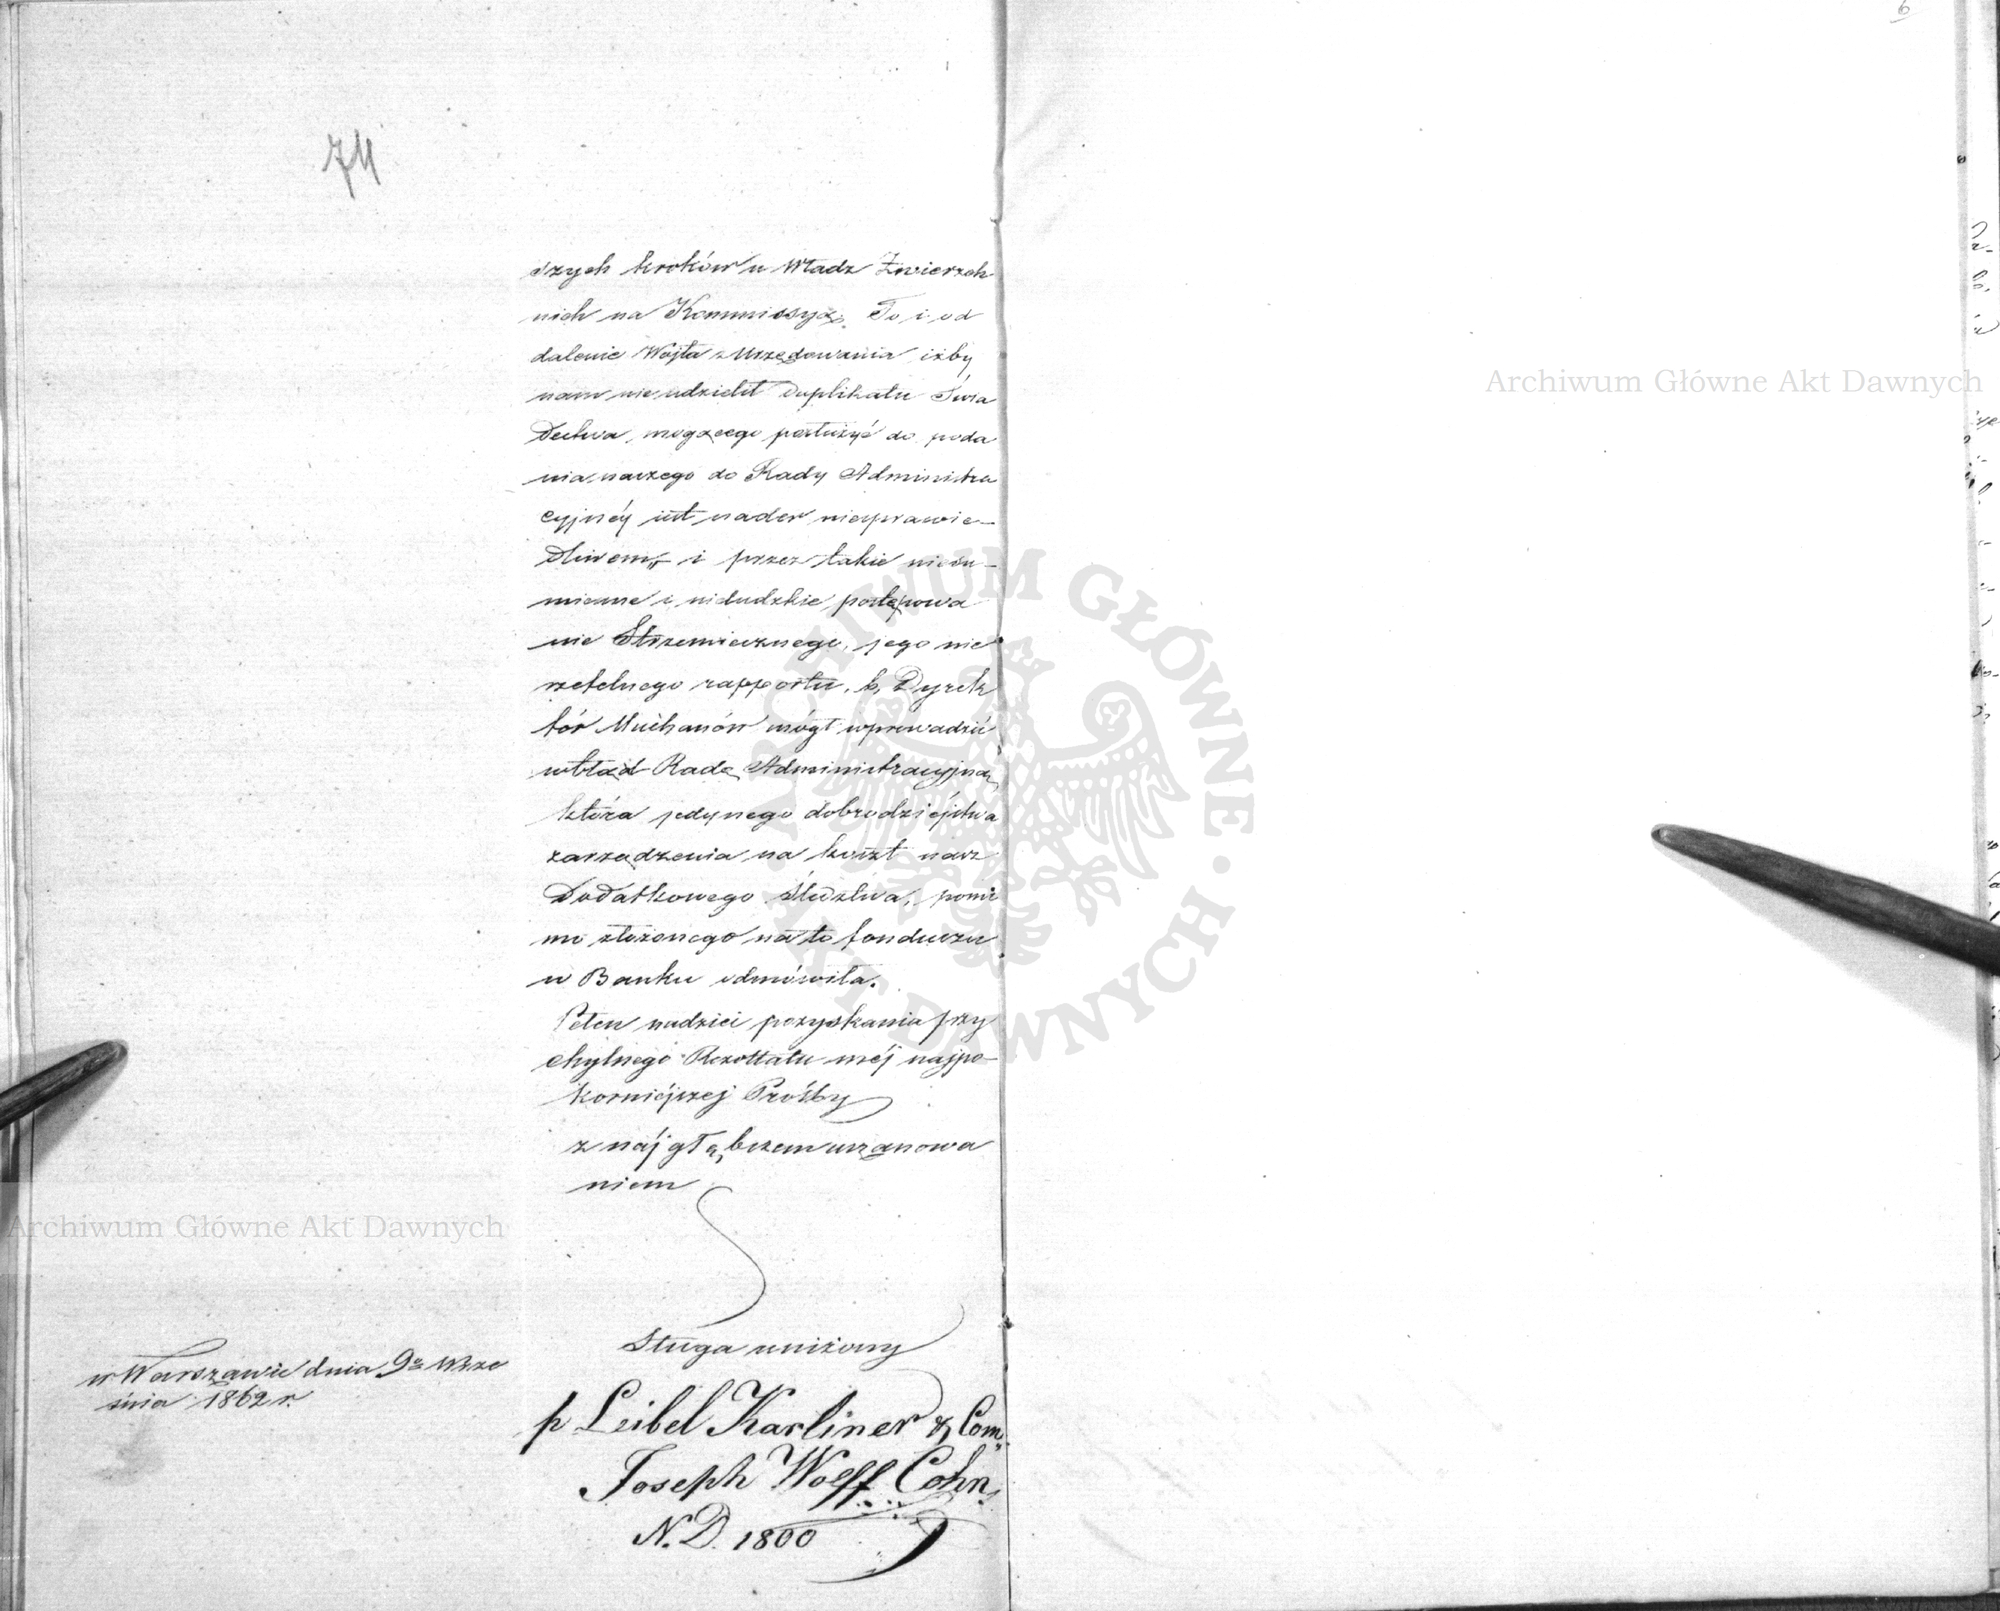 6
74
szych kroków u Władz Zwierzch
nich na Kommissyą. To i od
dalenie Wójta z Urzędowania iżby
nam nie udzielił Duplikatu Świa
Dectwa, mogącego posłużyć do poda
nia naszego do Rady Administra
cyjnéj jest nader niesprawie-
Dliwem, i przez takie niesu-
mienne i nieludzkie postępowa
nie Strzemiecznego, jego nie
rzetelnego rapportu, b. Dyrek
tór Muchanów mógł wprowadzić
w błąd Radę Administracyjną
która jedynego dobrodziejstwa
zarządzenia na koszt nasz
Dodatkowego Śledztwa, pomi
mo złożonego na to funduszu
w Banku odmówiła.
Pełen nadziei pozyskania przy
chylnego Rezultatu méj najpo-
korniéjszej Prośby
z náj głębszem uszanowa
niem
Sługa uniżony
w Warszawie dnia 9go Wrze
śnia 1862 r.
p Leibel Karliner & Com.
Joseph Wolff Cohn
N.D. 1800
Archiwum Główne Akt Dawnych
Archiwum Główne Akt Dawnych
ARCHIWUM GŁÓWNE · AKT DAWNYCH ·